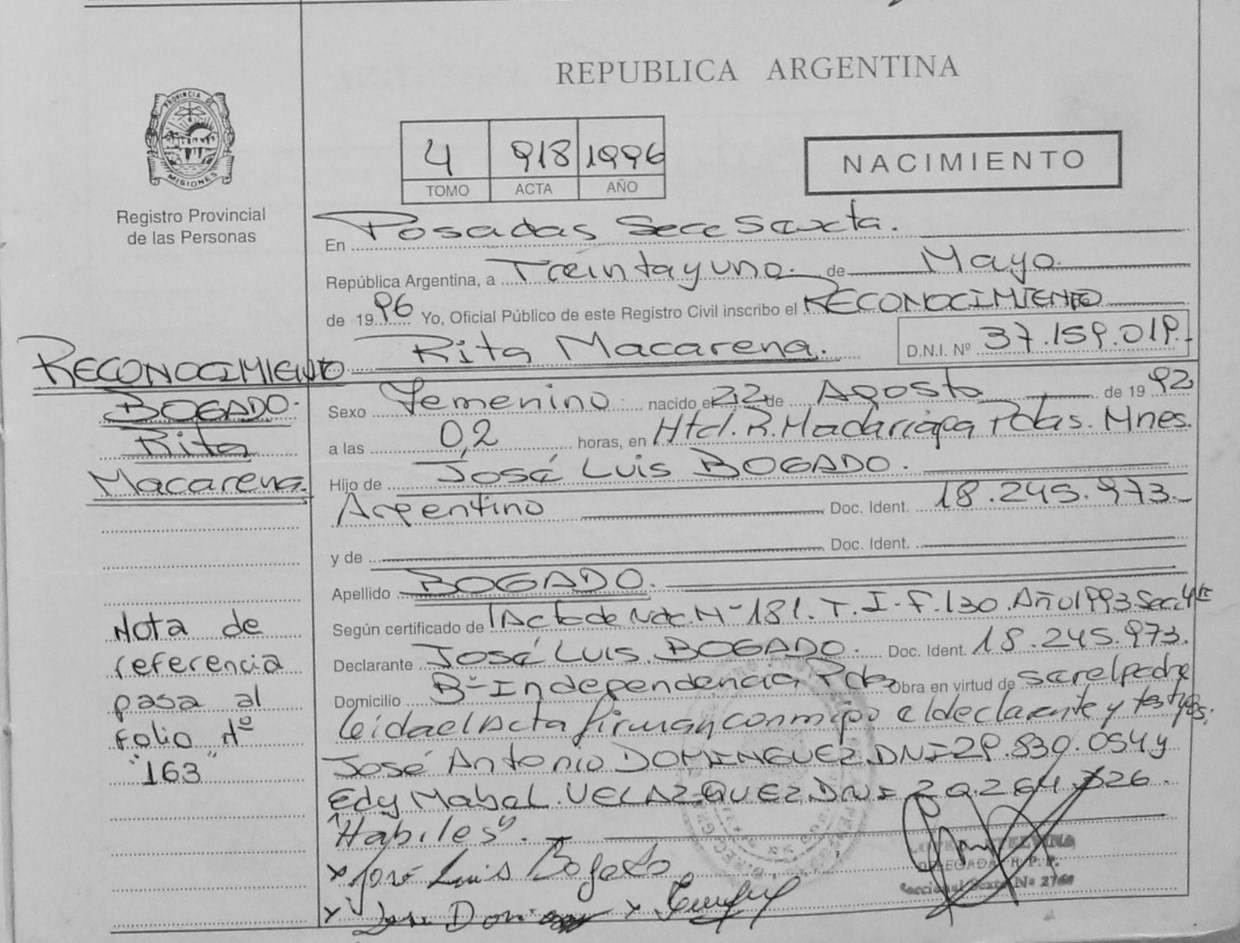 REPUBLICA ARGENTINA
PROVINCIA DE
MISIONES
Registro Provincial
de las Personas
4 918 1996
TOMO ACTA AÑO
NACIMIENTO
En Posadas Secc Sexta.
República Argentina, a Treintayuno de Mayo
de 1996 Yo, Oficial Público de este Registro Civil inscribo el RECONOCIMIENTO
Rita Macarena. D.N.I. Nº 37.159.019.
RECONOCIMIENTO
BOGADO.
Rita
Macarena.
Sexo Femenino nacido el 22 de Agosto de 1992
a las 02 horas, en Htal. R. Madariaga Pdas. Mnes.
Hijo de José Luis BOGADO.
Argentino Doc. Ident. 18.245.973.
y de Doc. Ident.
Apellido BOGADO.
Según certificado de Acta de Nac. Nº 181. T. I. F. 130. Año 1993 Secc. 4ta
Declarante José Luis BOGADO. Doc. Ident. 18.245.973.
Domicilio Bº Independencia Pdas Obra en virtud de ser el padre
leida el Acta firman conmigo el declarante y testigos:
José Antonio DOMINGUEZ. DNI 29.830.054 y
Edy Mabel VELAZQUEZ. DNI 20.264.326.
"Habiles".
x José Luis Bogado
x x
Nota de
referencia
pasa al
folio Nº
"163"
DELEGADA R.P.P.
Seccional Sexta Nº 2760